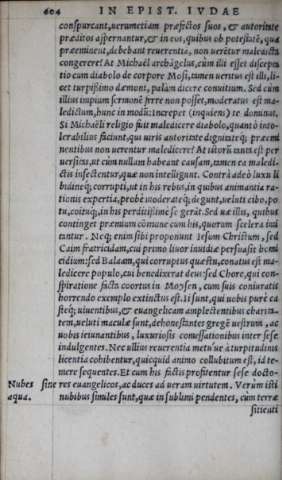 604 IN EPIST. IVDAE
conspurcant, verumetiam præfectos suos, & autoritate
præditos aspernantur, & in eos, quibus ob potestatē, qua
præeminent, debebant reuerentiā, non verētur maledicta
congerere. At Michaël archāgelus, cùm illi esset discepta
tio cum diabolo de corpore Mosi, tamen veritus est illi, li-
cet turpissimo dæmoni, palàm dicere conuitium. Sed cùm
illius impium sermonē ferre non posset, moderatus est ma-
ledictum, hunc in modū: Increpet (inquiens) te dominus.
Si Michaëli religio fuit maledicere diabolo, quantò into-
lerabilius faciunt, qui viris autoritate dignitateq́; præemi
nentibus non verentur maledicere? At istorū tanta est per
uersitas, ut cùm nullam habeant causam, tamen ea maledi-
ctis insectentur, quæ non intelligunt. Contrà adeò luxu li
bidineq́; corrupti, ut in his rebus, in quibus animantia ra-
tionis expertia, probè moderateq́; se gunt, veluti cibo, po
tu, coituq́;, in his perditissimè se gerāt. Sed uæ illis, quibus
continget præmium cōmune cum his, quorum scelera imi
tantur. Neq́; enim sibi proponunt Iesum Christum, sed
Caim fratricidam, cui primo liuor inuidiæ persuasit homi
cidium: sed Balaam, qui corruptus quæstu, conatus est ma-
ledicere populo, cui benedixerat deus: sed Chore, qui con-
spiratione facta coortus in Moysen, cum suis coniuratis
horrendo exemplo extinctus est. Ii sunt, qui uobis purè ca
steq́; uiuentibus, & euangelicam amplectentibus charita-
tem, ueluti maculæ sunt, dehonestantes gregē uestrum, ac
uobis ieiunantibus, luxuriosis comessationibus inter sese
indulgentes. Nec ullius reuerentia metu'ue à turpitudinis
licentia cohibentur, quicquid animo collubitum est, id te-
mere sequentes. Et cum his factis profitentur sese docto-
Nubes sine res euangelicos, ac duces ad ueram uirtutem. Verùm isti
aqua. nubibus similes sunt, quæ in sublimi pendentes, cùm terræ
sitienti